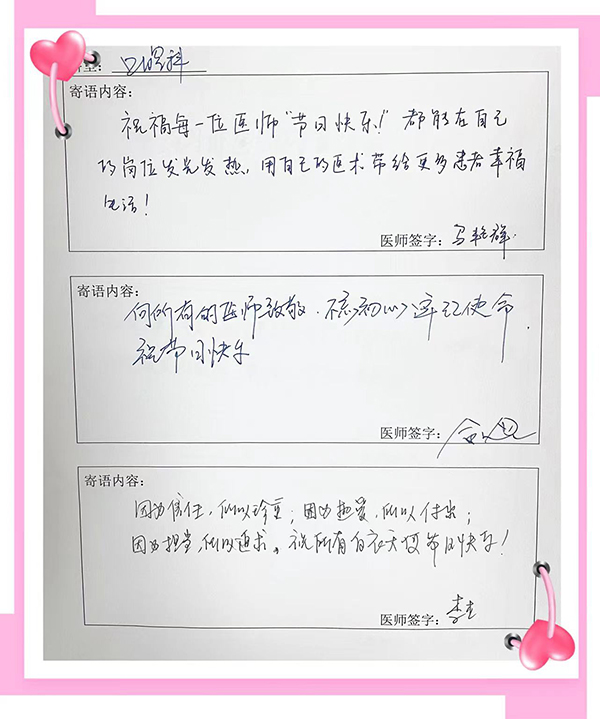 科室：口腔科
寄语内容：
祝福每一位医师“节日快乐！” 都能在自己
的岗位发光发热，用自己的医术带给更多患者幸福
生活！
医师签字：马艳群
寄语内容：
向所有的医师致敬．不忘初心牢记使命．
祝节日快乐
医师签字：
寄语内容：
因为信任，所以珍重；因为热爱，所以付出；
因为担当，所以追求。祝所有白衣天使节日快乐！
医师签字：李